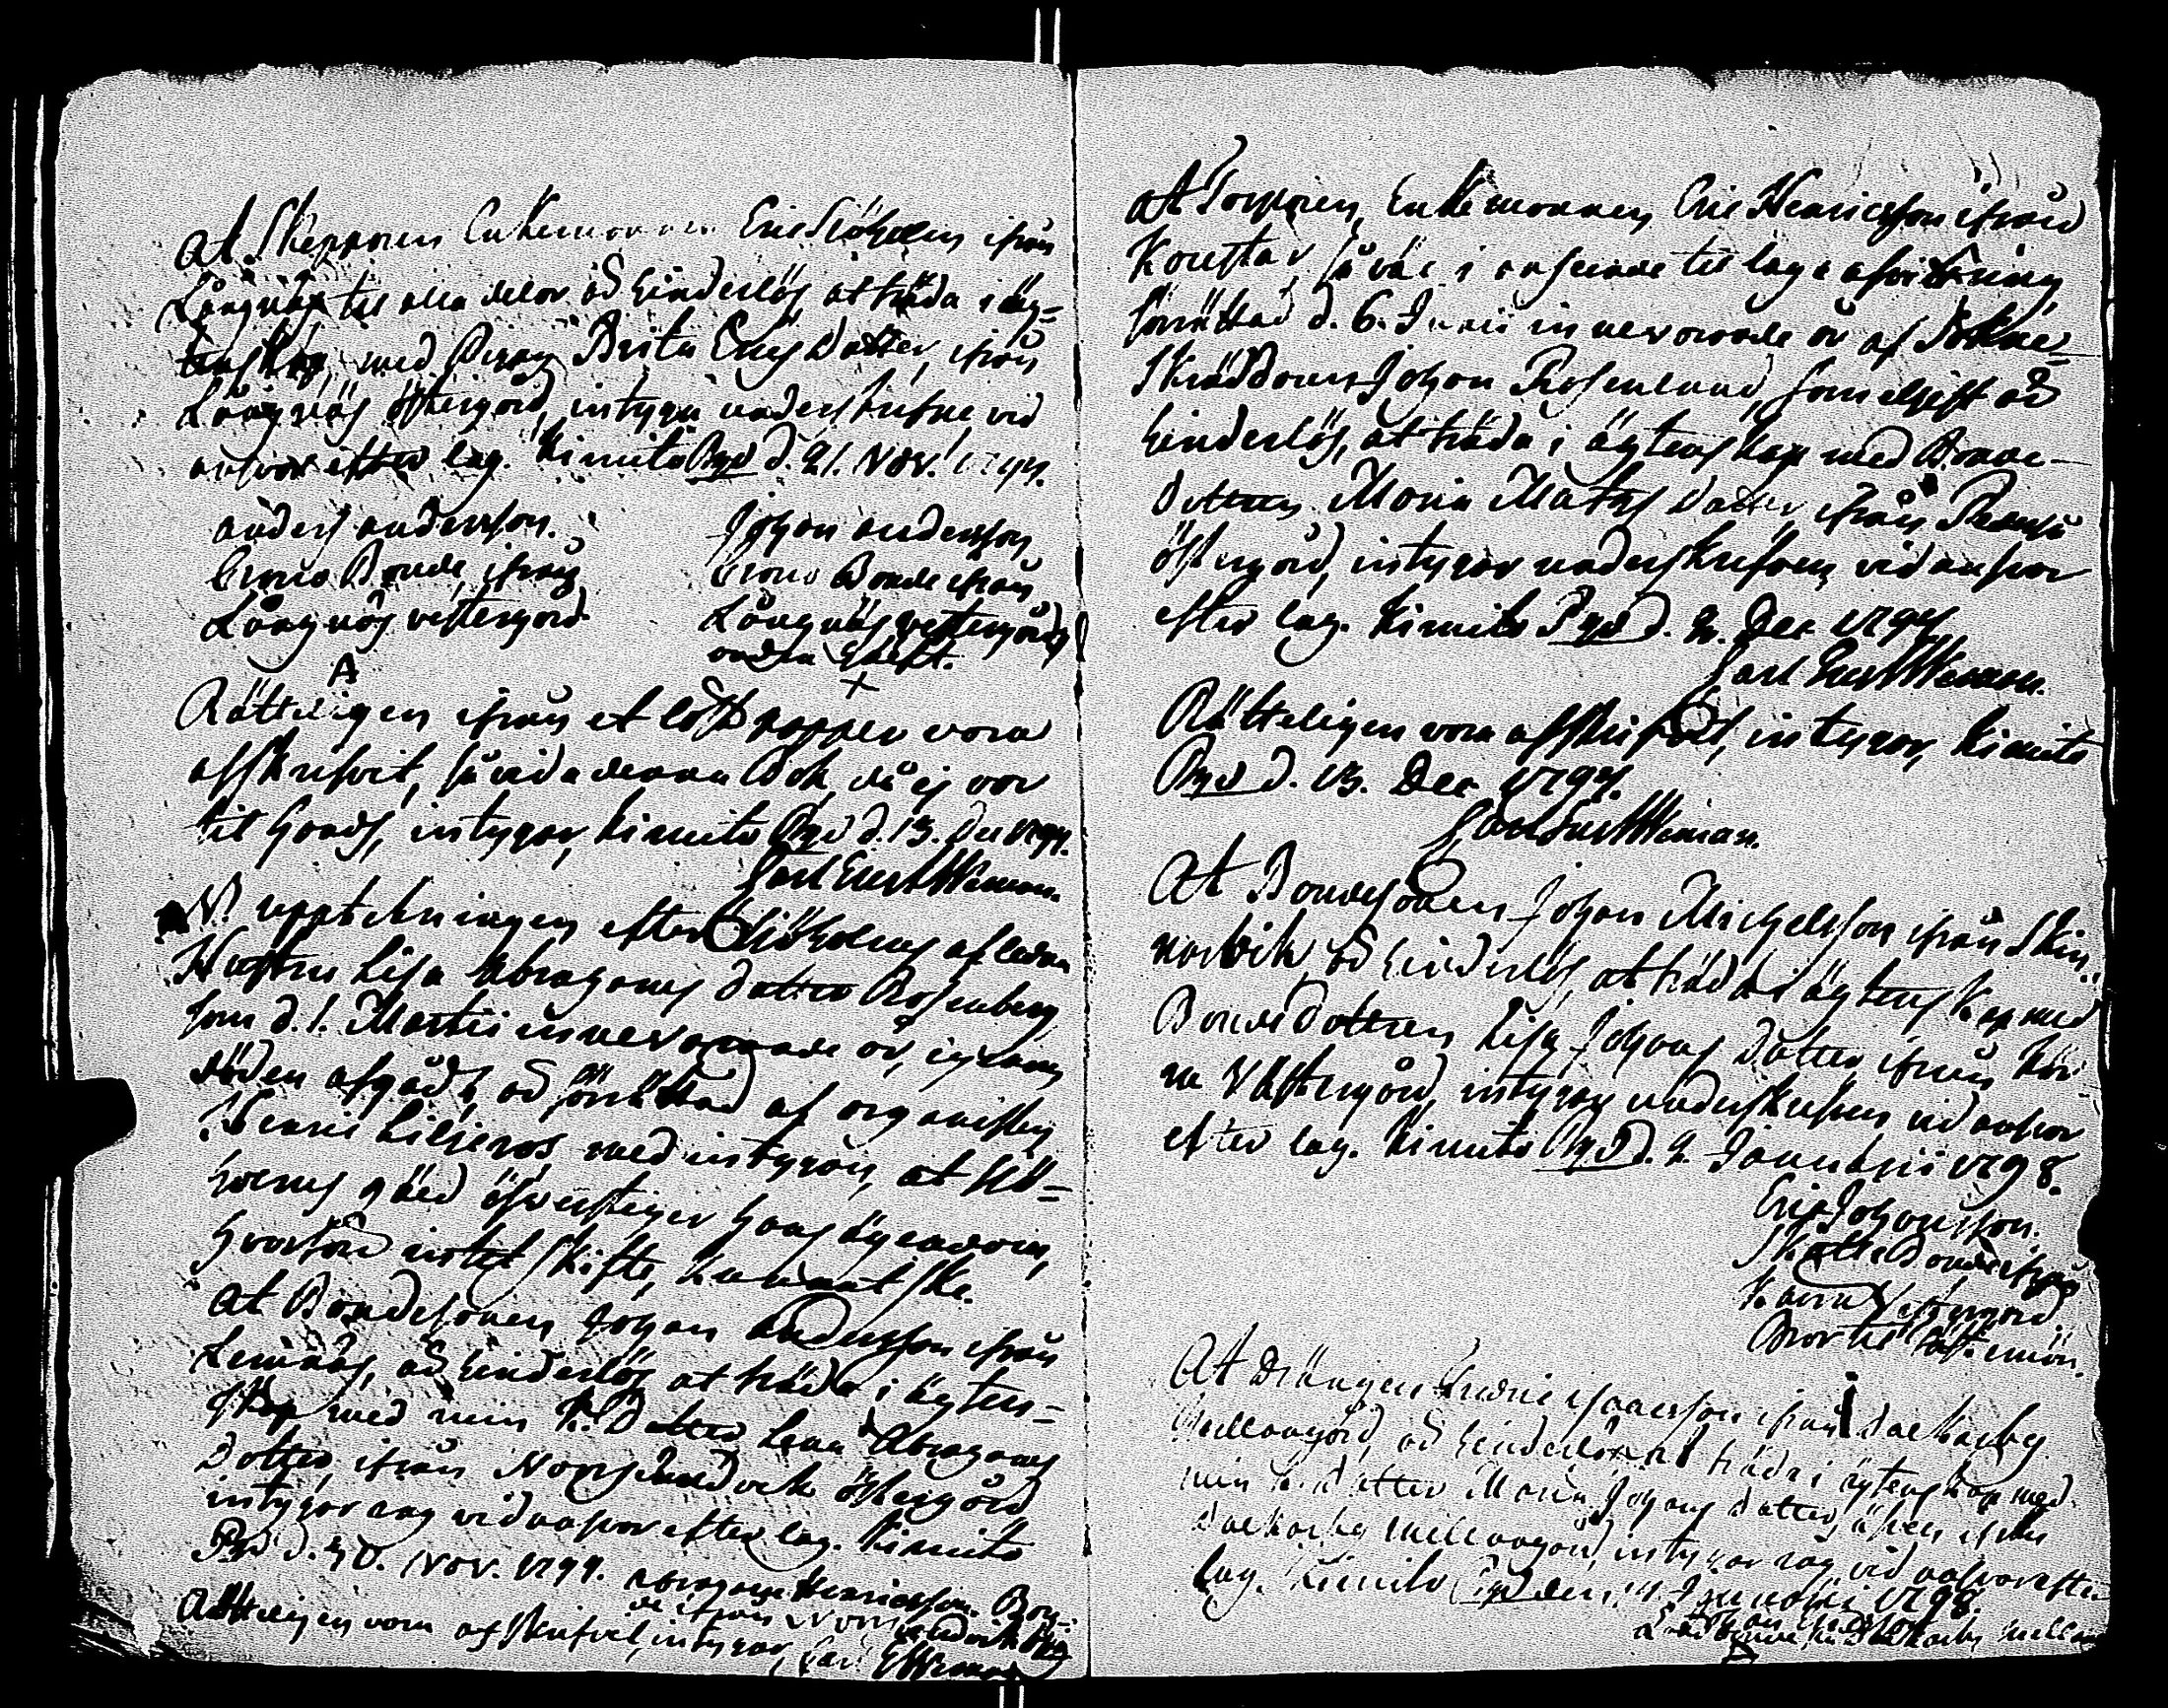 At Skepparen Enkemannen Eric Siöholm ifrån
Långnäs til alla delar är hinderlös at träda i äg=
tenskap med Pigan Brita Ericsdotter, ifrån
Långnäs östergård, intyga underskrefne vid
answar efter lag. Kimito Pgd d. 21. Nov. 1797.
Anders Andersson.
Crono Bonde ifrån
Långnäs vestergård
A
Johan Andersson
Crono Bonde ifrån
Långnäs vestergård
andra hälft.
Rätteligen ifrån et löst papper vara
afskrifvit, så vida denna Bok då ej var
til hands, intygar, Kimito Pgd d. 13. Dec 1797.
Carl Gust Weman.
N. upptekningen efter Siöholms afledna
Hustru Lisa Abrahams dotter Rosenberg
som d. 1. Martii innevarande år, igenom
döden afgådt är förrättad af organisten
Henric Liljeros med intygan, at Siö=
holms gäld öfverstiger hans ägendom,
hvarföre intet skifte, kunnat ske.
At Bondesonen Johan Andersson ifrån
Lemnäs, är hinderlös at träda i ägten=
skap med min K. Dotter Lena Abrahams
Dotter ifrån Norrsundvik östergård
intygar jag vid answar efter lag. Kimito
Pgd d. 30. Nov. 1797. Abraham Henricsson. Bon=
de ifrån Norrsundvik
Rätteligen vara afskrifvit, intygar, Carl G Weman
At Torparen, Enkemannen Eric Henricsson ifrån
såväl i anseende til laga afvittring,
förrättad d. 6. Junii innevarande år af Sokne=
Skräddaren Johan Rosenlund, som elljest är
hinderlös, at träda i ägtenskap med Bonde=
dottren Maria Matsdotter ifrån
östergård, intygar underskrefven vid answar
efter lag. Kimito Pgd d. 2. Dec 1797
Carl Gust Weman.
Rätteligen vara afskrifvit, intygar, Kimito
Pgd d. 13. Dec 1797.
Carl Gust Weman.
At Bondesonen Johan Michelsson ifrån Skin=
narvik, är hinderlös, at träda i ägtenskap med
Bondedottren Lisa Johans dotter ifrån
Västergård, intygar underskrefven vid answar
efter lag. Kimito Pgd d. 2. Januarii 1798.
Eric Johansson.
Skatte Bonde ifrån
Vestergård.
Bror til fästemön.
At Drängen Isaacsson ifrån Dalkarby
Mellangård, är hinderlös at träda i ägtenskap med
min K. dotter Maria Johans dotter, äfven ifrån
Dalkarby Mellangård, intygar jag, vid answar efter
lag. Kimito Pgd den 14 Januarii 1798.
Dalkarby Mellan